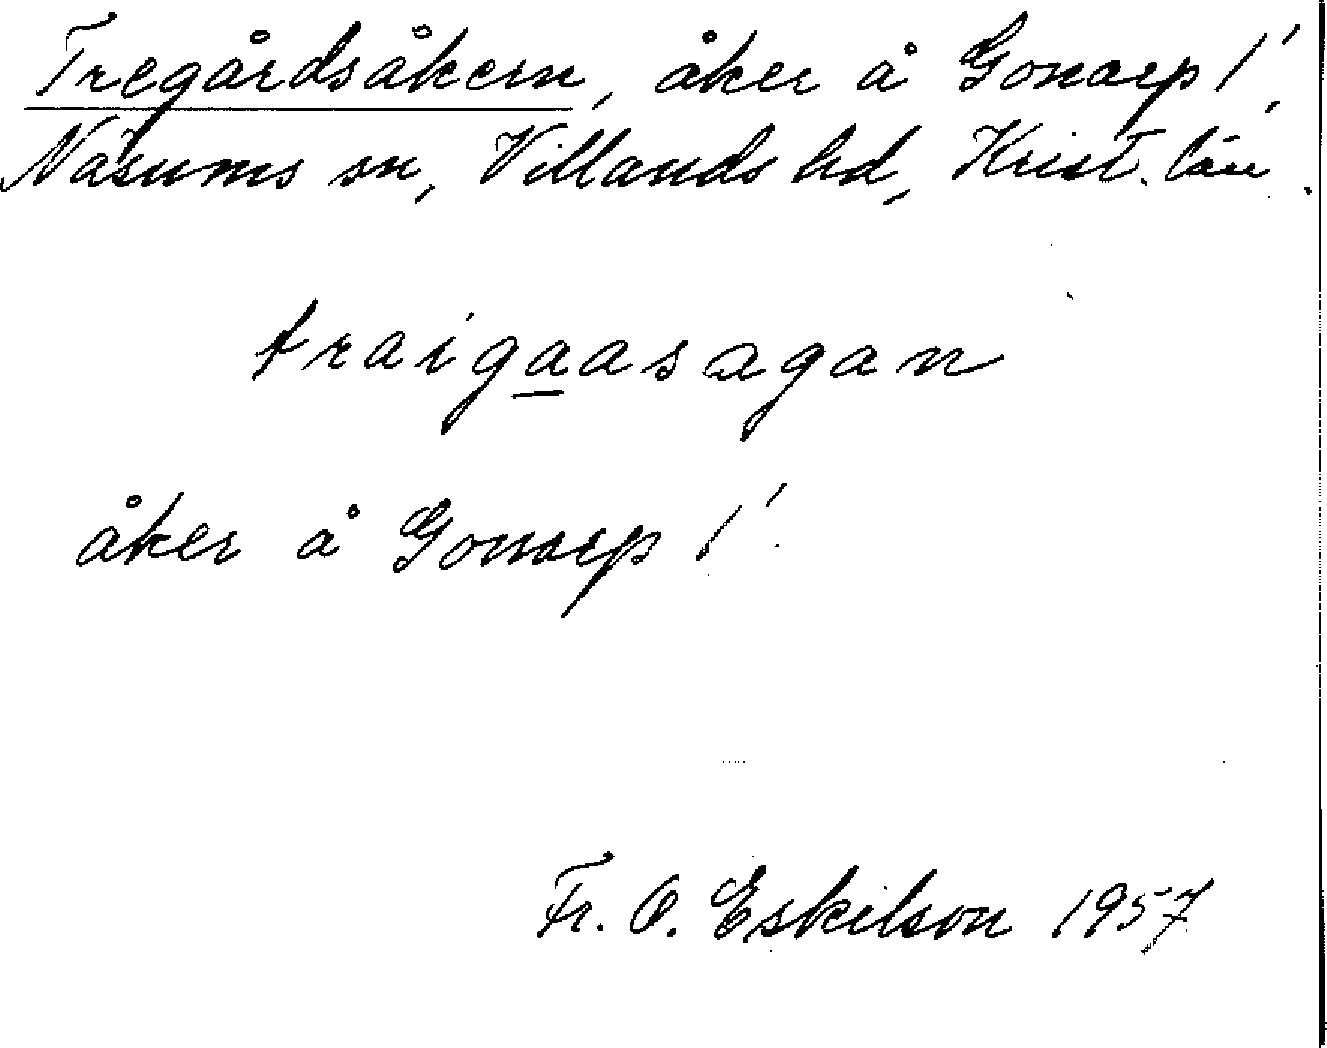 Tregårdsåkern, åker å Gonarp 1',
Näsums sn, Villands hd, Krist. län.
traigaasagan
åker å Gonarp 1'.
Fr. O. Eskilson 1957